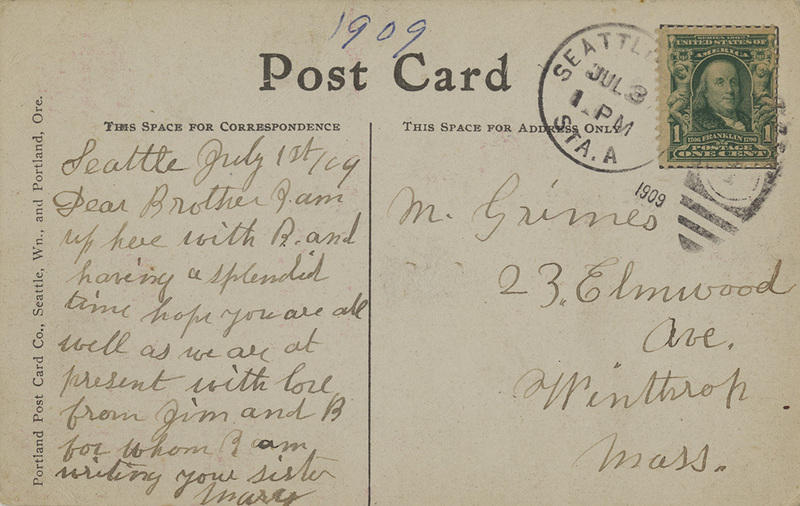 1909
Post Card
THIS SPACE FOR CORRESPONDENCE
THIS SPACE FOR ADDRESS ONLY
Portland Post Card Co., Seattle, Wn., and Portland, Ore.
Seattle July 1st/09
Dear Brother I am
up here with B. and
having a splendid
time hope you are all
well as we are at
present with love
from Jim and B
for whom I am
writing your sister
Mary
SEATTLE
JUL 3
1 PM
STA. A
1909
SERIES 1902
UNITED STATES OF
AMERICA
1 1706 FRANKLIN 1790 1
POSTAGE
ONE CENT
M. Grimes
23, Elmwood
Ave.
Winthrop
Mass.